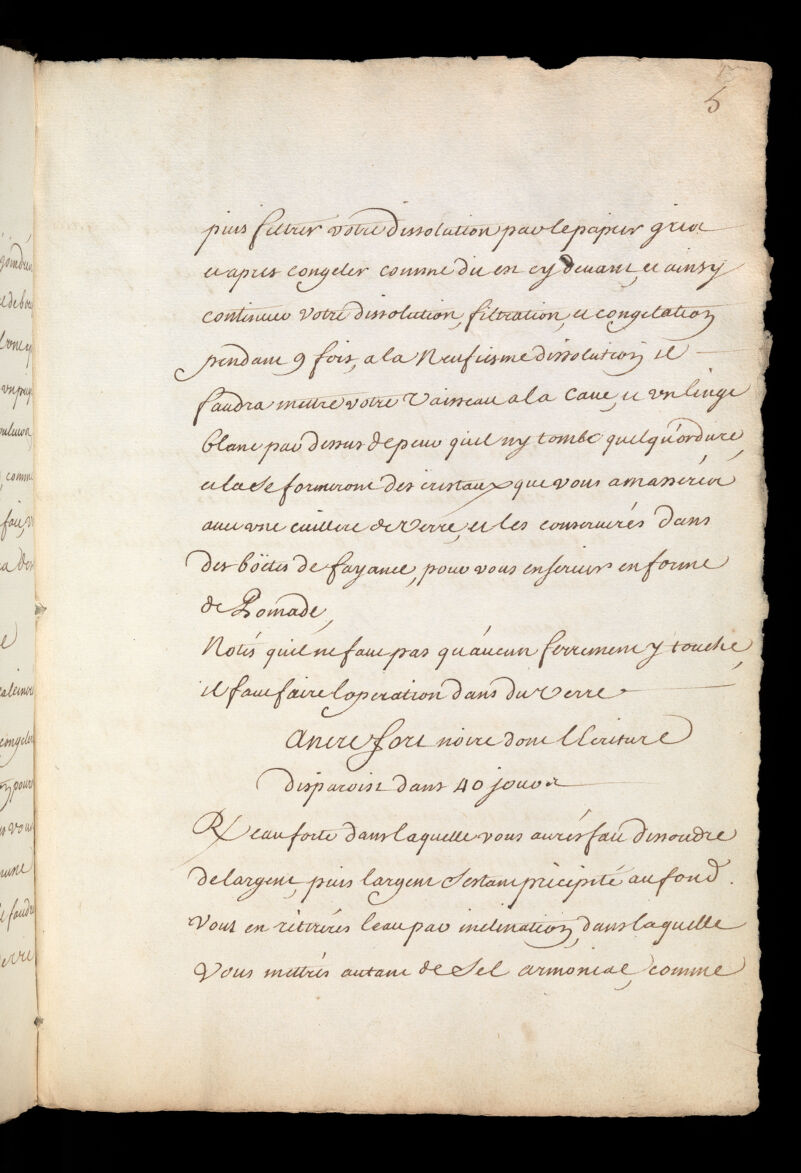 5
puis filtrer votre dissolution par le papier gris
et apres congeler comme dit est cy devant, et ainsy
continuer votre dissolution, filtration, et congelation
pendant 9 fois, a la Neufiesme dissolution il
faudra mettre votre Vaisseau a la Cave, et un linge
blanc par dessus de peur qu'il n'y tombe quelqu'ordure,
et la se formeront des cristaux que vous amasserés
avec une cuillere de Verre, et les conserverés dans
des boëtes de fayance, pour vous en servir en forme
de Pomade,
Notés qu'il ne faut pas qu'aucun ferrement y touche,
il faut faire l'operation dans du verre
Ancre fort noire dont l'Ecriture
disparoist dans 40 jours
Rx eau forte dans laquelle vous aurés fait dissoudre
de largent, puis largent sestant précipité au fond.
Vous en rétirerés leau par inclination, dans laquelle
Vous mettrés autant de Sel armoniac, comme